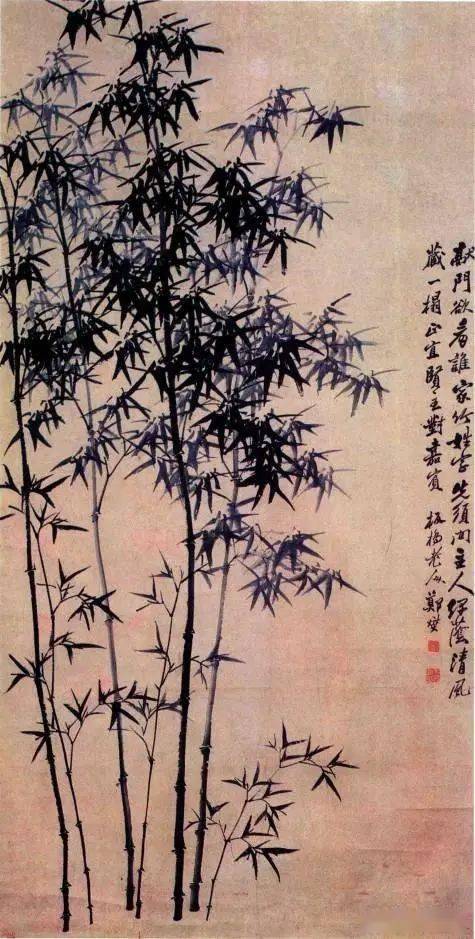 門欲看誰家竹姓字先須問主人緑蔭清風
藏一榻正宜賢主對嘉賓 板橋老人鄭燮